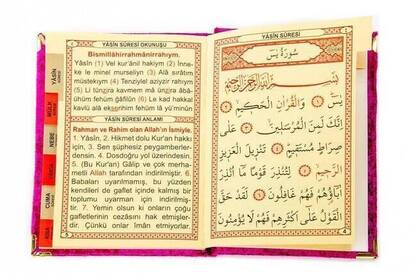 YÂSÎN SÛRESİ OKUNUŞU
Bismillâhirrahmânirrahıym.
Yâsîn (1) Vel kur'ânil hakiym (2) İnne-
ke le minel murseliyn (3) Alâ sırâtım
müstekıym (4) Tenziylel aziyzir rahıym
(5) Li tünzira kavmen mâ ünzira âbâ-
ühüm fehüm ğâfilûn (6) Le kad hakkal
kavlü alâ ekserihim fehüm lâ yü'minûn
YÂSÎN SÛRESİ ANLAMI
Rahman ve Rahim olan Allah'ın İsmiyle.
1. Yâsîn, 2. Hikmet dolu Kur'an hakkı
için, 3. Sen şüphesiz peygamberler-
densin. 4. Dosdoğru yol üzerindesin.
5. (Bu Kur'an) Gâlip ve çok merha-
metli Allah tarafından indirilmiştir. 6.
Babaları uyarılmamış, bu yüzden
kendileri de gaflet içinde kalmış bir
toplumu uyarman için indirilmiş-
tir. 7. Yemin olsun ki onların çoğu
gafletlerinin cezasını hak etmişler-
dir. Çünkü onlar îman etmiyorlar.
5
YÂSÎN
MÜLK
NEBE
CUMA
YÂSÎN SÛRESİ
سُورَةُ يٰسٓ
بِسْمِ اللّٰهِ الرَّحْمٰنِ الرَّحِيمِ
يٰسٓ ﴿١﴾ وَالْقُرْاٰنِ الْحَكِيمِ ﴿٢﴾
اِنَّكَ لَمِنَ الْمُرْسَلِينَ ﴿٣﴾ عَلٰى
صِرَاطٍ مُسْتَقِيمٍ ﴿٤﴾ تَنْزِيلَ الْعَزِيزِ
الرَّحِيمِ ﴿٥﴾ لِتُنْذِرَ قَوْمًا مَٓا اُنْذِرَ
اٰبَٓاؤُ۬هُمْ فَهُمْ غَافِلُونَ ﴿٦﴾ لَقَدْ حَقَّ
الْقَوْلُ عَلٰٓى اَكْثَرِهِمْ فَهُمْ لَا يُؤْمِنُونَ
4